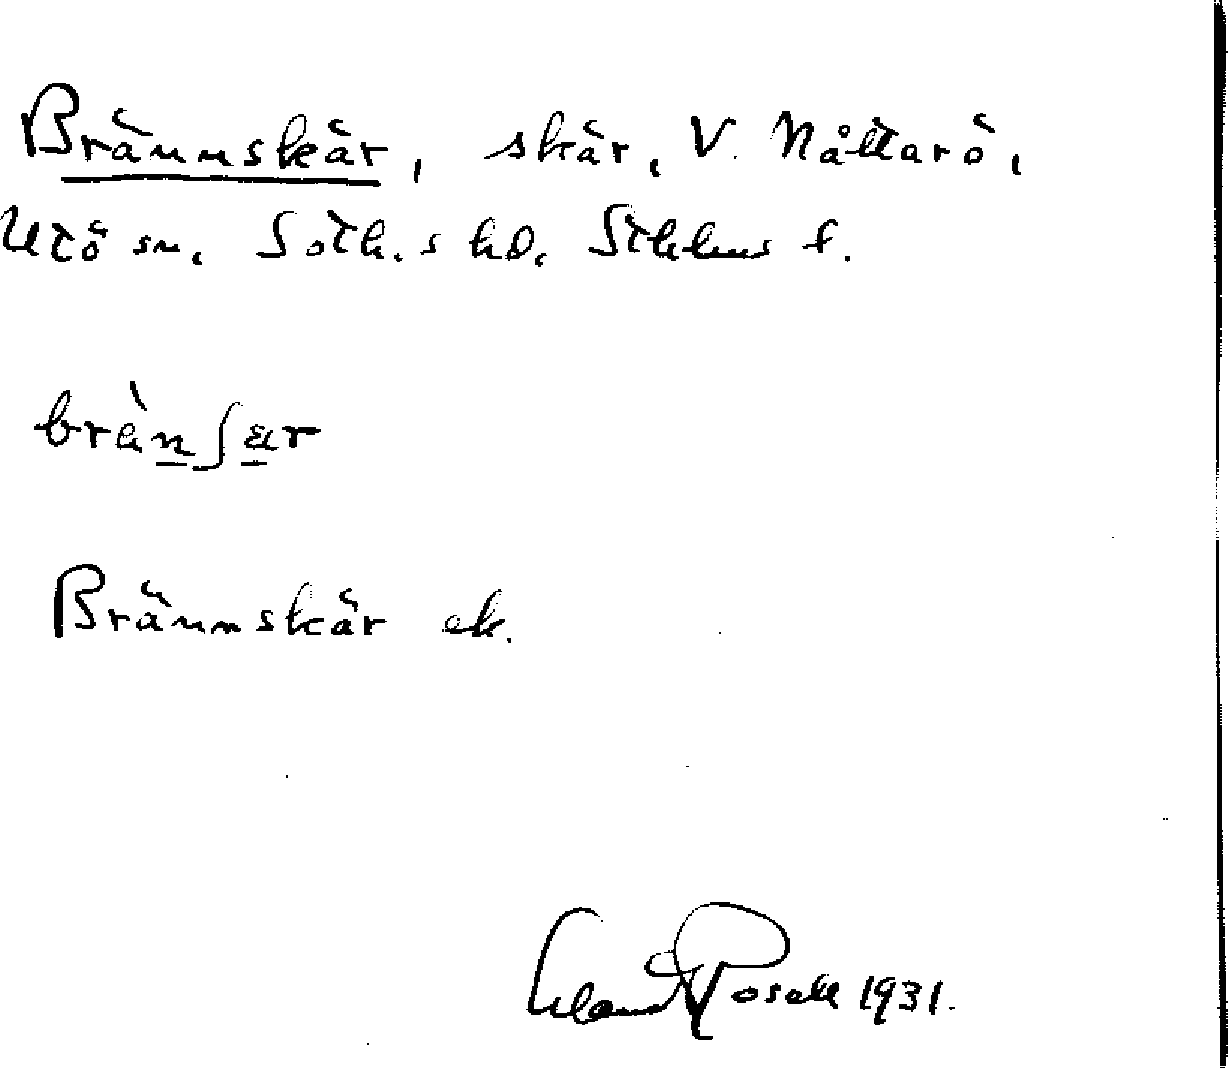 Brännskär, skär, V. Nåttarö,
Utö sn. Soth.s hd. Sthlms l.
brä̀nʃær
Brännskär ek.
Erland Rosell 1931.